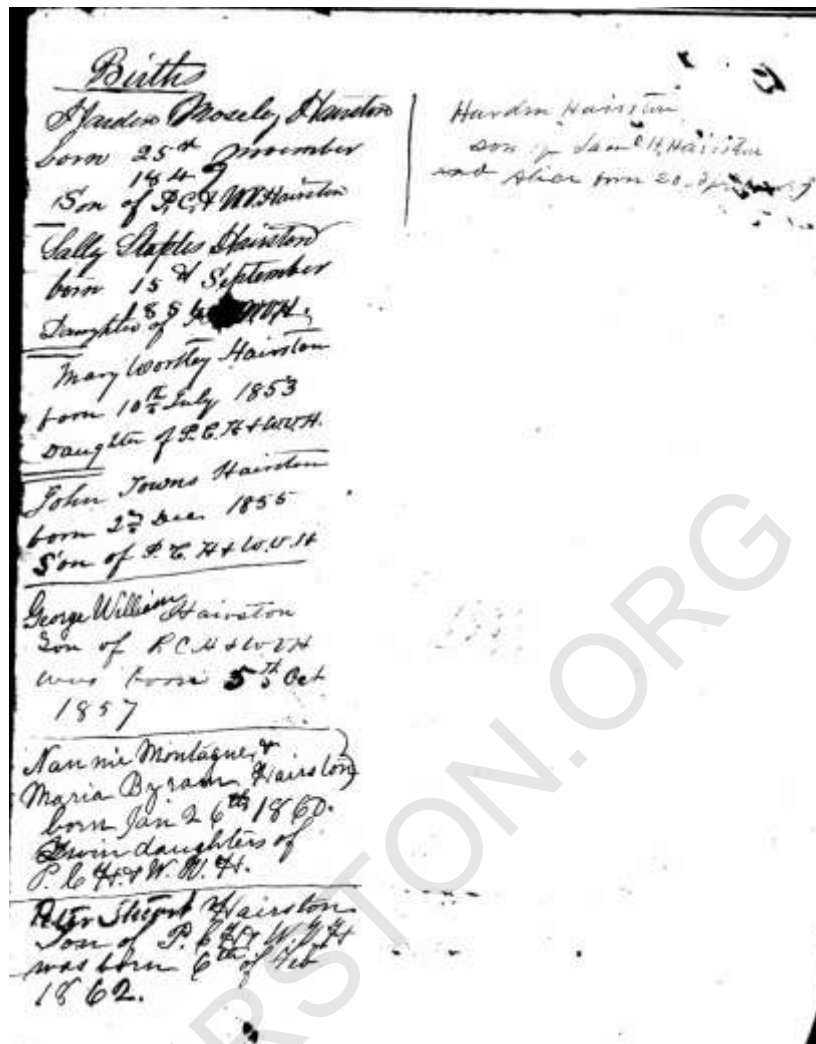 Births
Harden Moseley Hairston
born 25th November
184
Son of P.C.H & W.V. Hairston
Sally Staples Hairston
born 15th September
Daughter of W.V.H.
Mary Wortley Hairston
born 10th July 1853
Daughter of P.C.H & W.V.H.
John Towns Hairston
born 2nd Dec. 1855
Son of P.C.H & W.V.H
George William Hairston
Son of P.C.H & W.V.H
was born 5th Oct
1857
Nannie Montague &
Maria Byram Hairston
born Jan 26th 1860.
Twin daughters of
P.C.H. & W.V.H.
Peter Stuart Hairston
Son of P.C.H & W.V.H
was born 6th of Feb
1862.
Hardin Hairston
son of Saml H. Hairston
and Alice born 20
RSTON.ORG